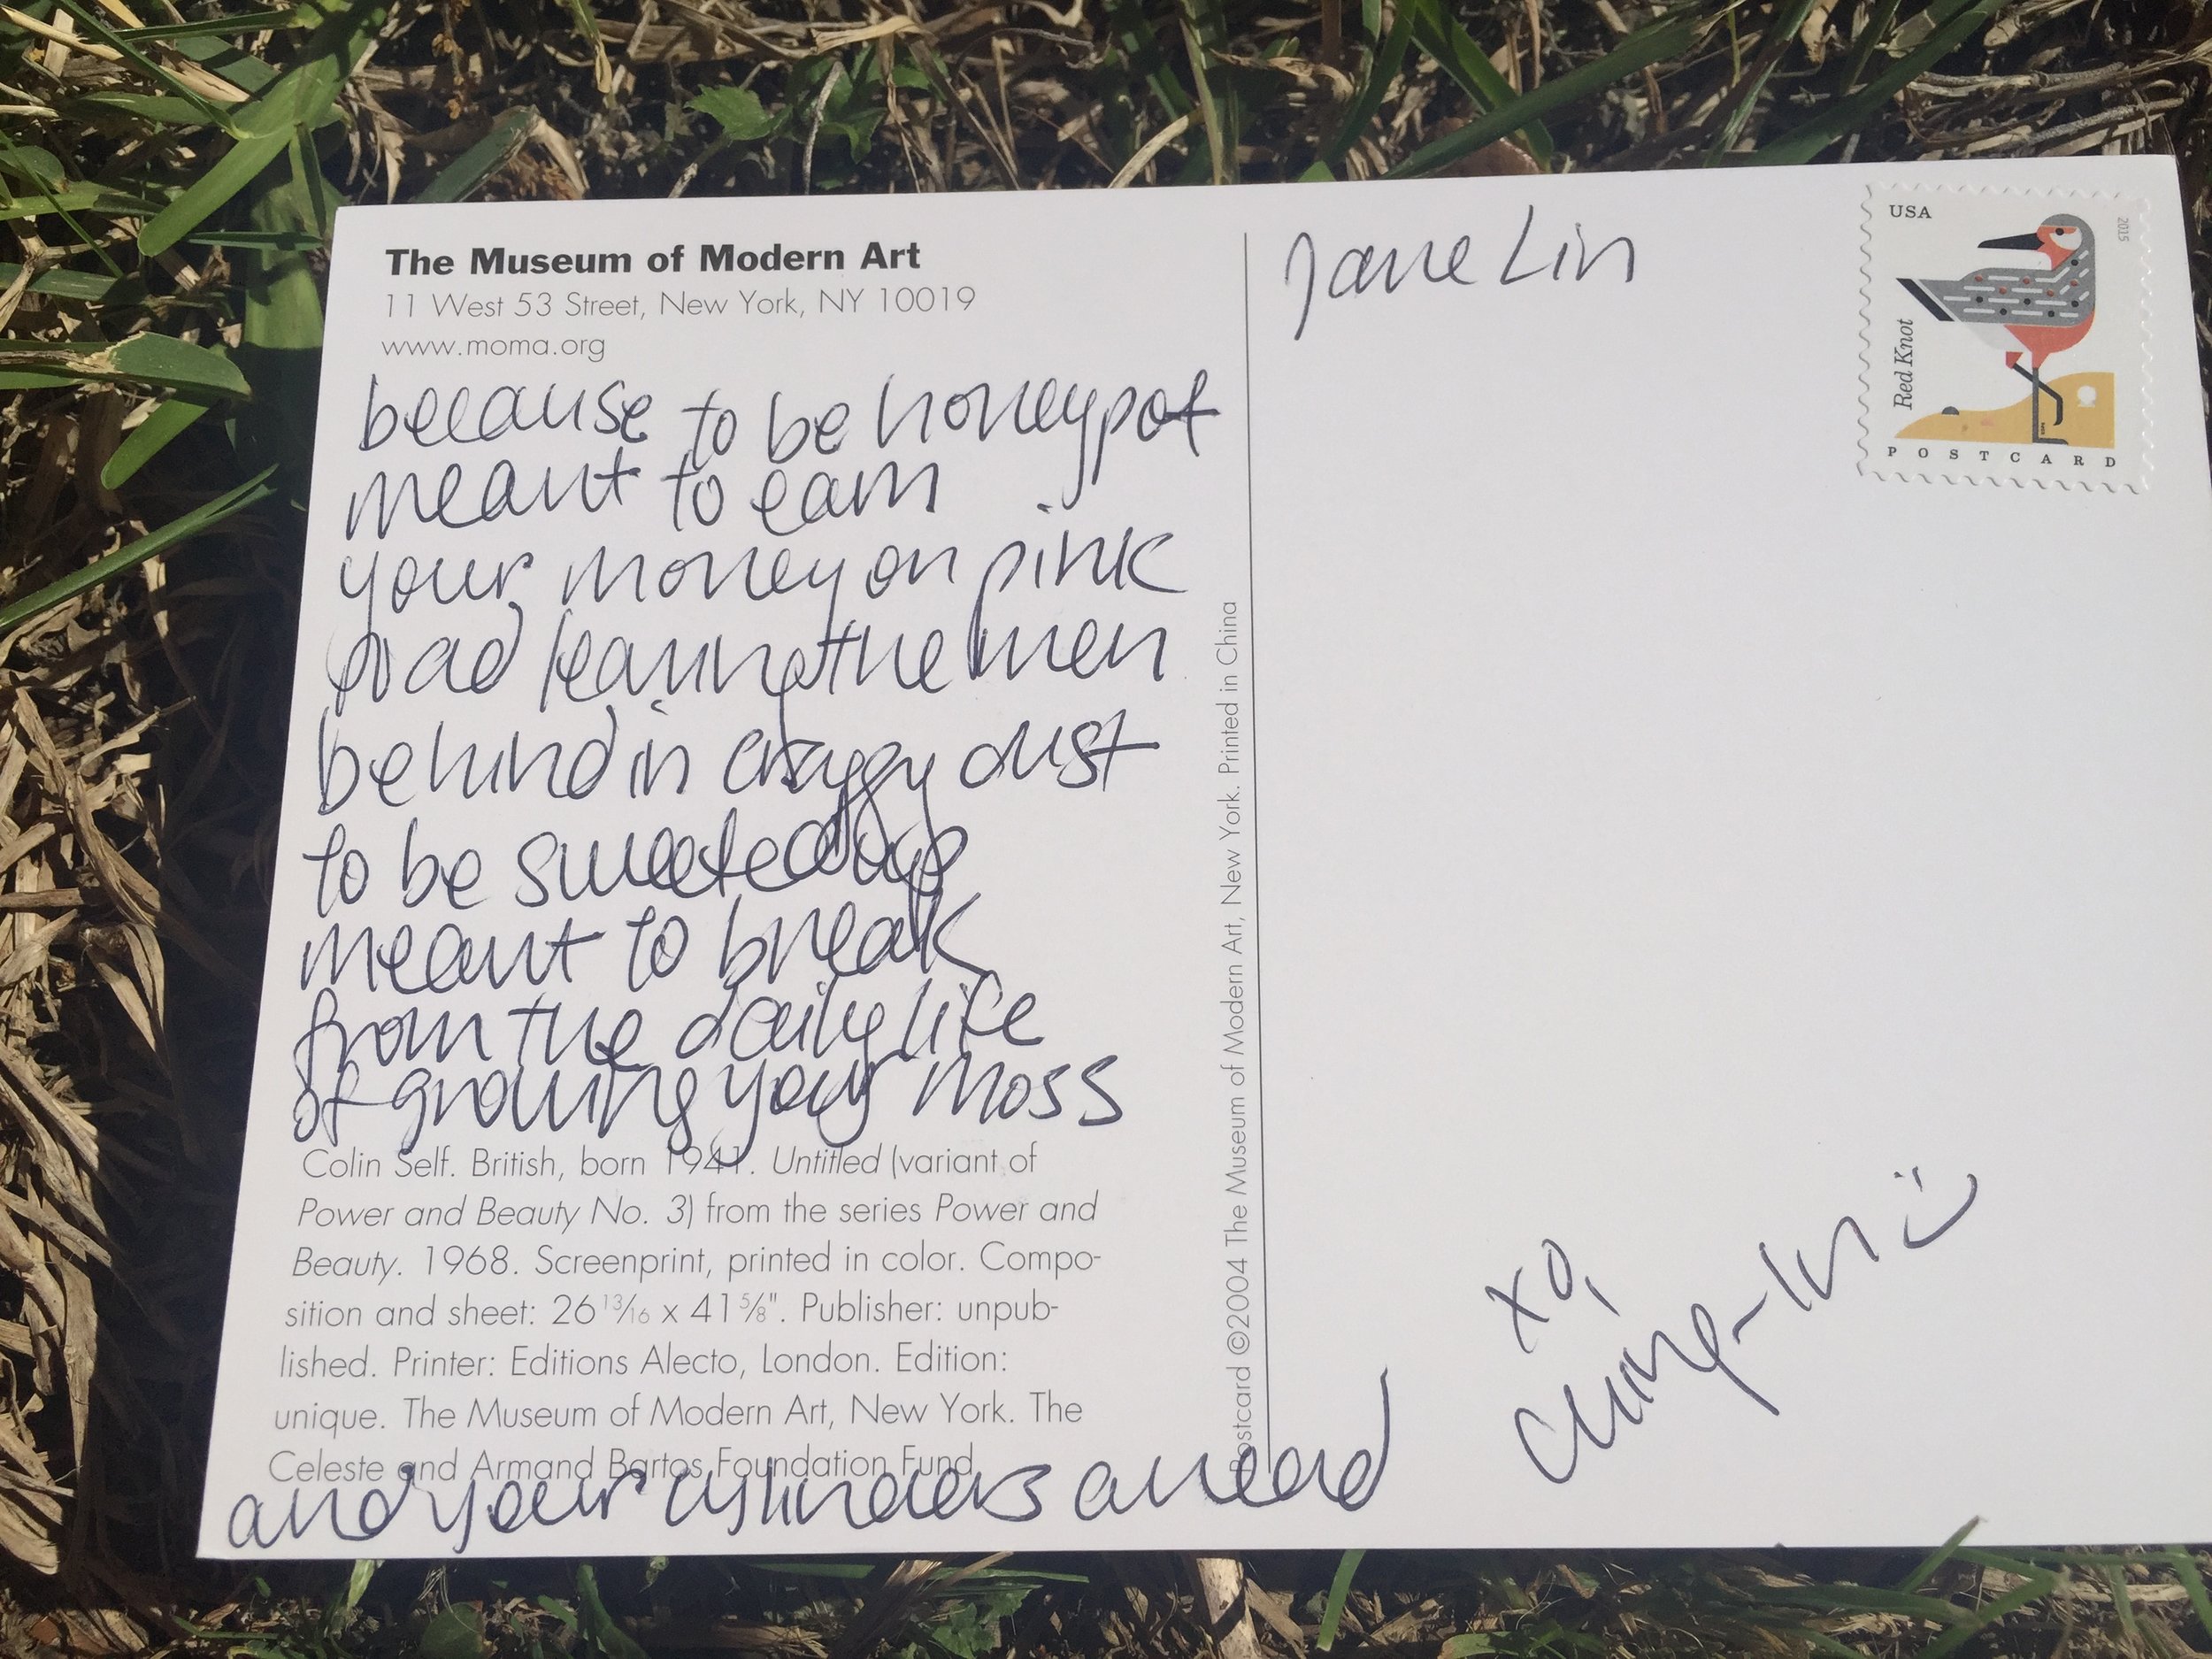 The Museum of Modern Art
11 West 53 Street, New York, NY 10019
www.moma.org
because to be honeypot
meant to earn
your money on pink
road leaving the men
behind in craggy dust
to be sweetened up
meant to break
from the daily life
of growing your moss
Colin Self. British, born 1941. Untitled (variant of
Power and Beauty No. 3) from the series Power and
Beauty. 1968. Screenprint, printed in color. Compo-
sition and sheet: 26 13/16 x 41 5/8". Publisher: unpub-
lished. Printer: Editions Alecto, London. Edition:
unique. The Museum of Modern Art, New York. The
Celeste and Armand Bartos Foundation Fund
and your cylinders ahead
Postcard ©2004 The Museum of Modern Art, New York. Printed in China
Jane Lin
USA
2015
Red Knot
POSTCARD
xo,